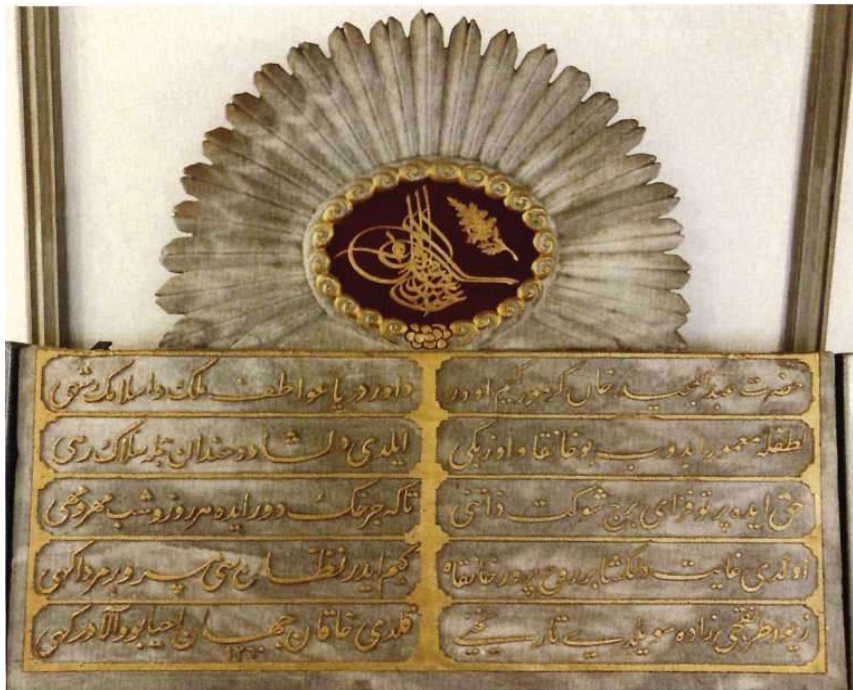 حضرت عبدالمجيد خان كرمور كيم اودر داور دريا عواطف ملك و اسلامك شهى
لطفله معمور ايدوب بو خانقاه اوزبكى ايلدى دلشاد و خندان جمله سلاك رهى
حق ايده پرتو فزاى برج شوكت ذاتنى تاكه چرخك دور ايده هر روز و شب مهر و مهى
اولدى غايت دلكشا بر روح پرور خانقاه كيم ايدر نظاره سى مرد اكهى
زيور زاده سويلدى تاريخنى قلدى خاقان جهان احيا بو والا دركهى
١٢٦٠